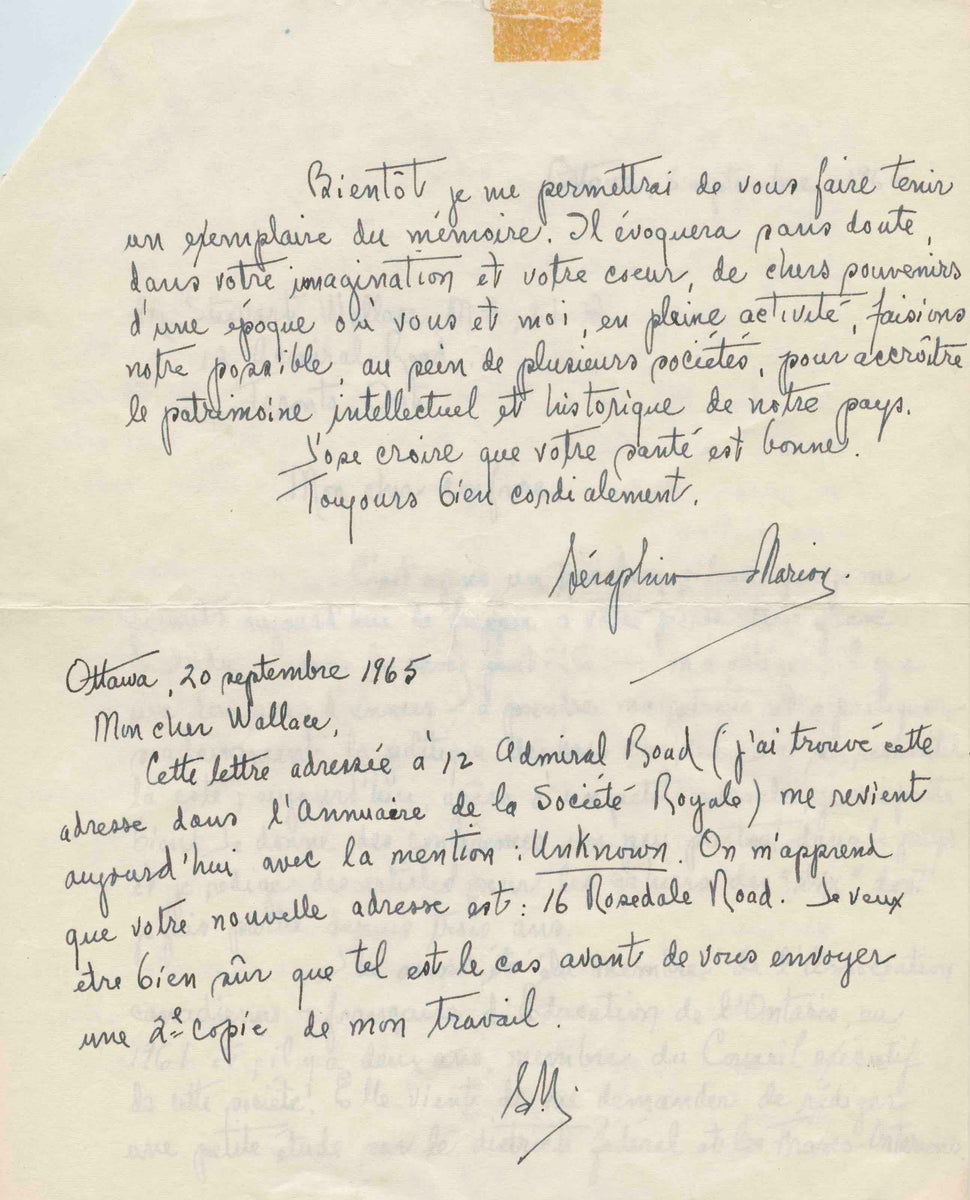 Bientôt je me permettrai de vous faire tenir
un exemplaire du mémoire. Il évoquera sans doute,
dans votre imagination et votre coeur, de chers souvenirs
d'une époque où vous et moi, en pleine activité, faisions
notre possible, au sein de plusieurs sociétés, pour accroître
le patrimoine intellectuel et historique de notre pays.
J'ose croire que votre santé est bonne.
Toujours bien cordialement.
Séraphin Marion.
Ottawa, 20 septembre 1965
Mon cher Wallace,
Cette lettre adressée à 12 Admiral Road (j'ai trouvé cette
adresse dans l'Annuaire de la Société Royale) me revient
aujourd'hui avec la mention : Unknown. On m'apprend
que votre nouvelle adresse est : 16 Rosedale Road. Je veux
être bien sûr que tel est le cas avant de vous envoyer
une 2e copie de mon travail.
SM.